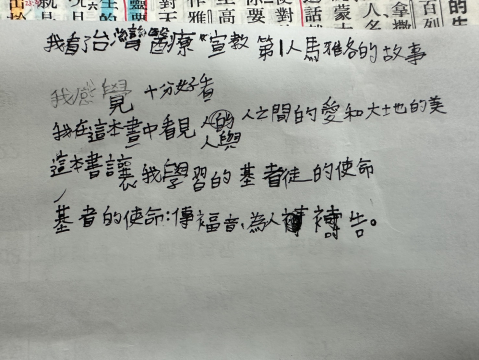 我看了台灣"醫療"宣教 第1人馬雅各的故事
我感覺 十分好看
我在這本書中看見人與人之間的愛和大地的美
這本書讓我學習的基督徒的使命
基督的使命:傳福音、為人禱告。